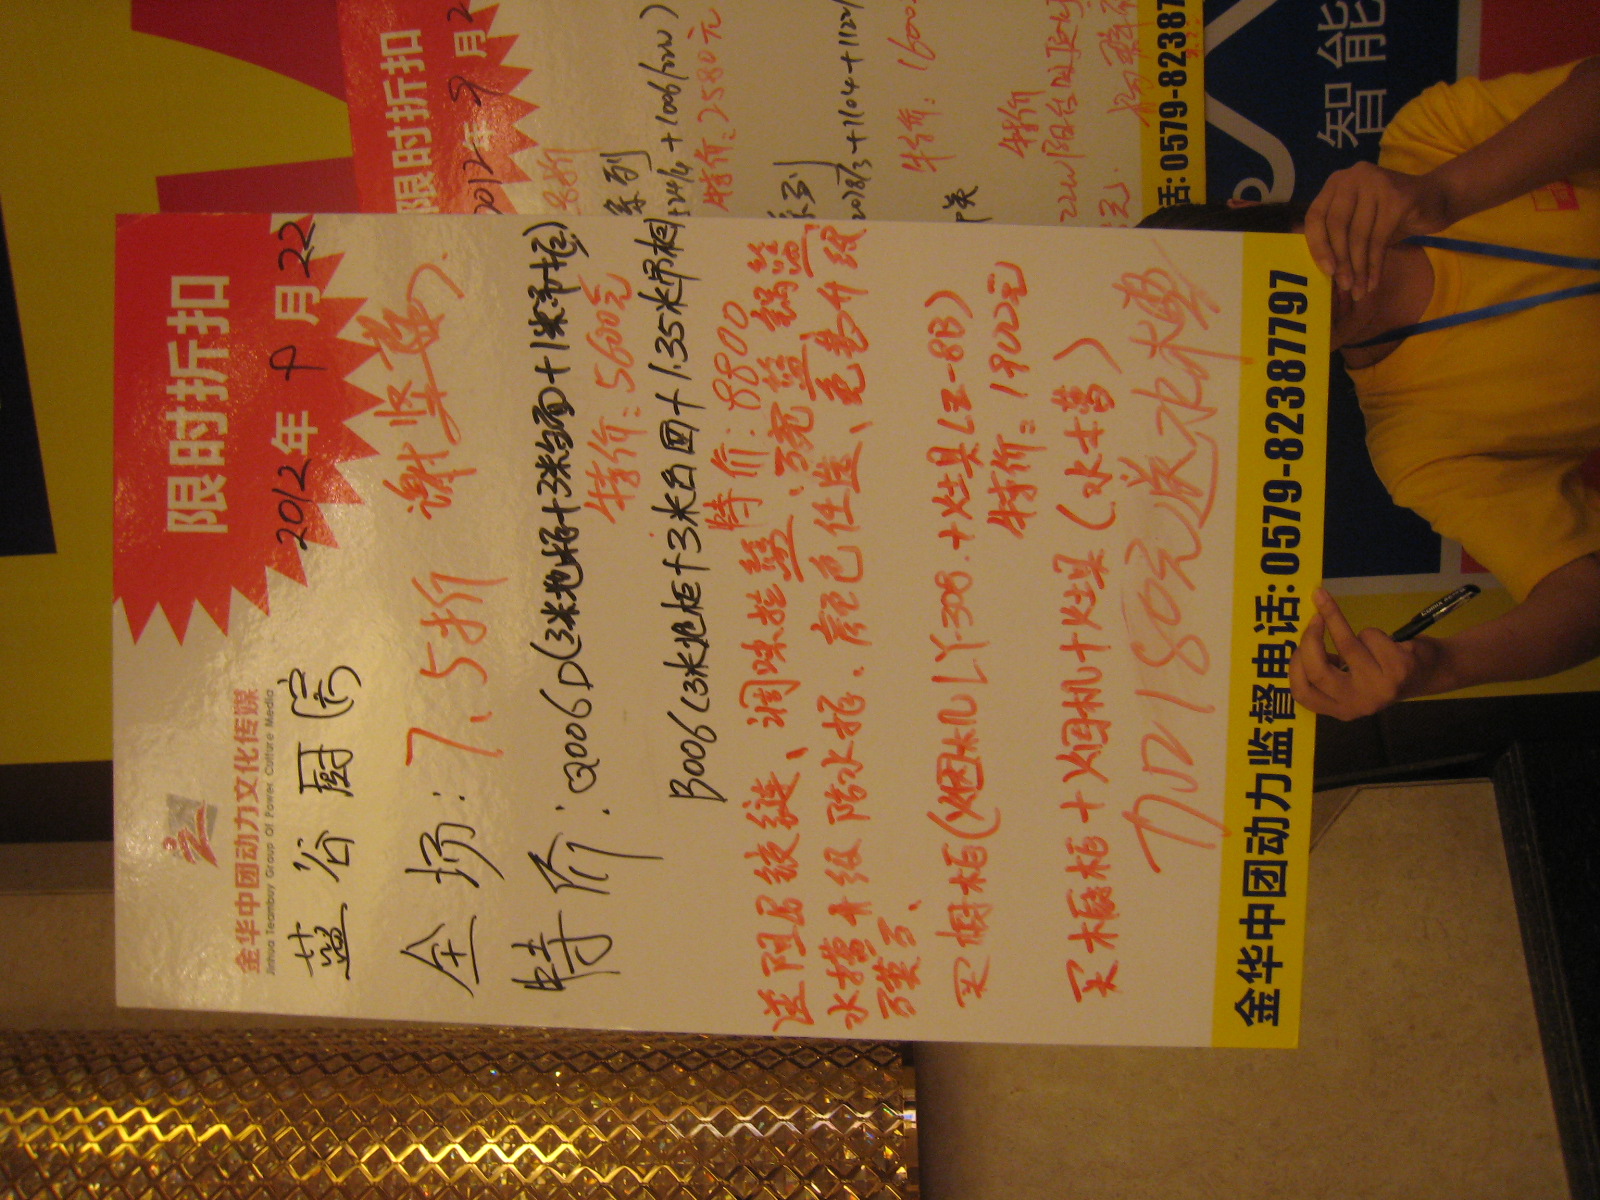 限时折扣
金华中团动力文化传媒
Jinhua Teambuy Group Of Power Culture Media
2012年 9月22
蓝谷厨房
全场:7.5折 谢坚
特价:Q006D(3米地柜+3米台面+1米吊柜)
特价:5600元
B006(3米地柜+3米台面+1.35米吊柜
特价:8800
送阻尼铰链、调味拉篮、碗篮、锅篮、
水槽升级防水柜.颜色任选、免费升级
买橱柜(烟机LY-308.+灶具LZ-8B)
特价:1900元
买橱柜+烟机+灶具(水槽)
加180元送水槽
金华中团动力监督电话:0579-82387797
限时折扣
2012年 9月2
8折
系列
+1006/22W)
特价:2580元
系列
2078/3+1104+1122/
特价:1600
特价
元.
话:0579-82387
智能